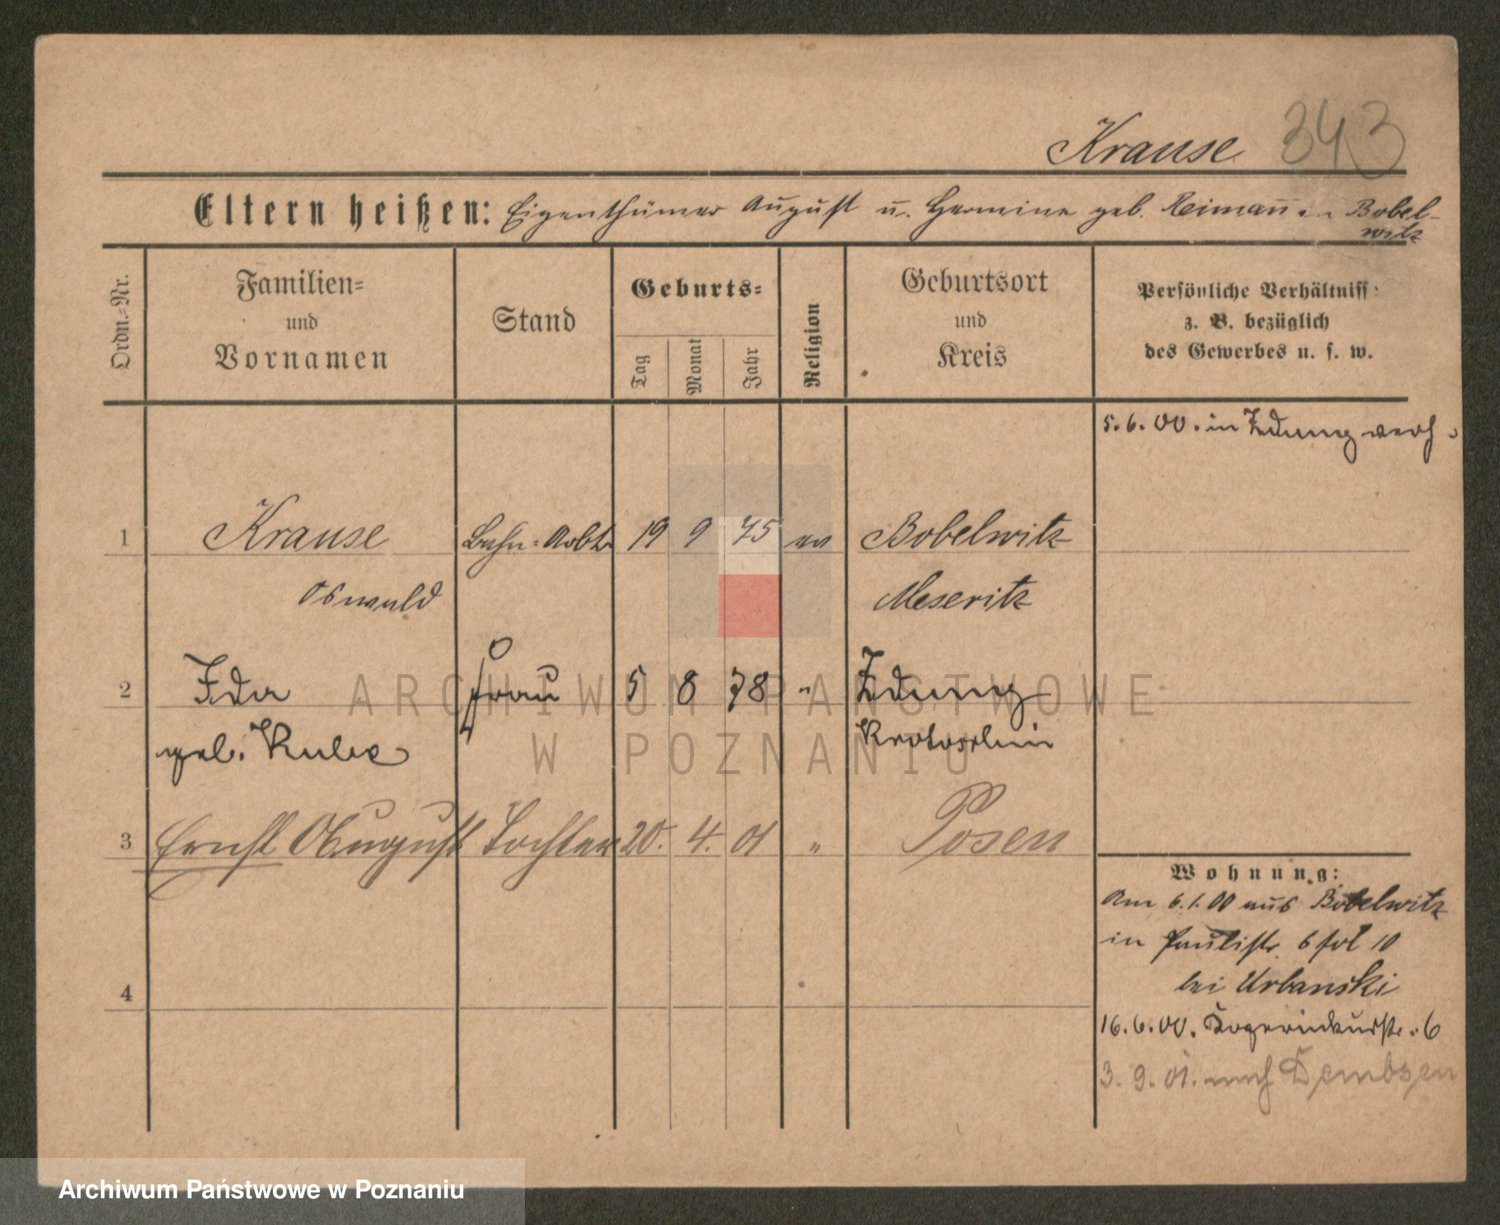 Krause 343
Eltern heißen: Eigenthümer August u. Hermine geb. Reimann in Bobel-
witz
Ordn.-Nr.
Familien-
und
Vornamen
Stand
Geburts-
Tag
Monat
Jahr
Religion
Geburtsort
und
Kreis
Persönliche Verhältniss
z. B. bezüglich
des Gewerbes u. s. w.
5. 6. 00. in Zduny verh.
1 Krause Bahn-Arbtr 19 9 75 ev Bobelwitz
Oswald Meseritz
2 Ida Frau 5 8 78 " Zduny
geb. Kube Krotoschin
3 Ernst August Tochter 20. 4. 01 " Posen
4
Wohnung:
Am 6.1.00 aus Bobelwitz
in Paulistr. 6 fol 10
bei Urbanski
16.6.00. 6
3. 9. 01. nach Dembsen
ARCHIWUM PAŃSTWOWE
W POZNANIU
Archiwum Państwowe w Poznaniu